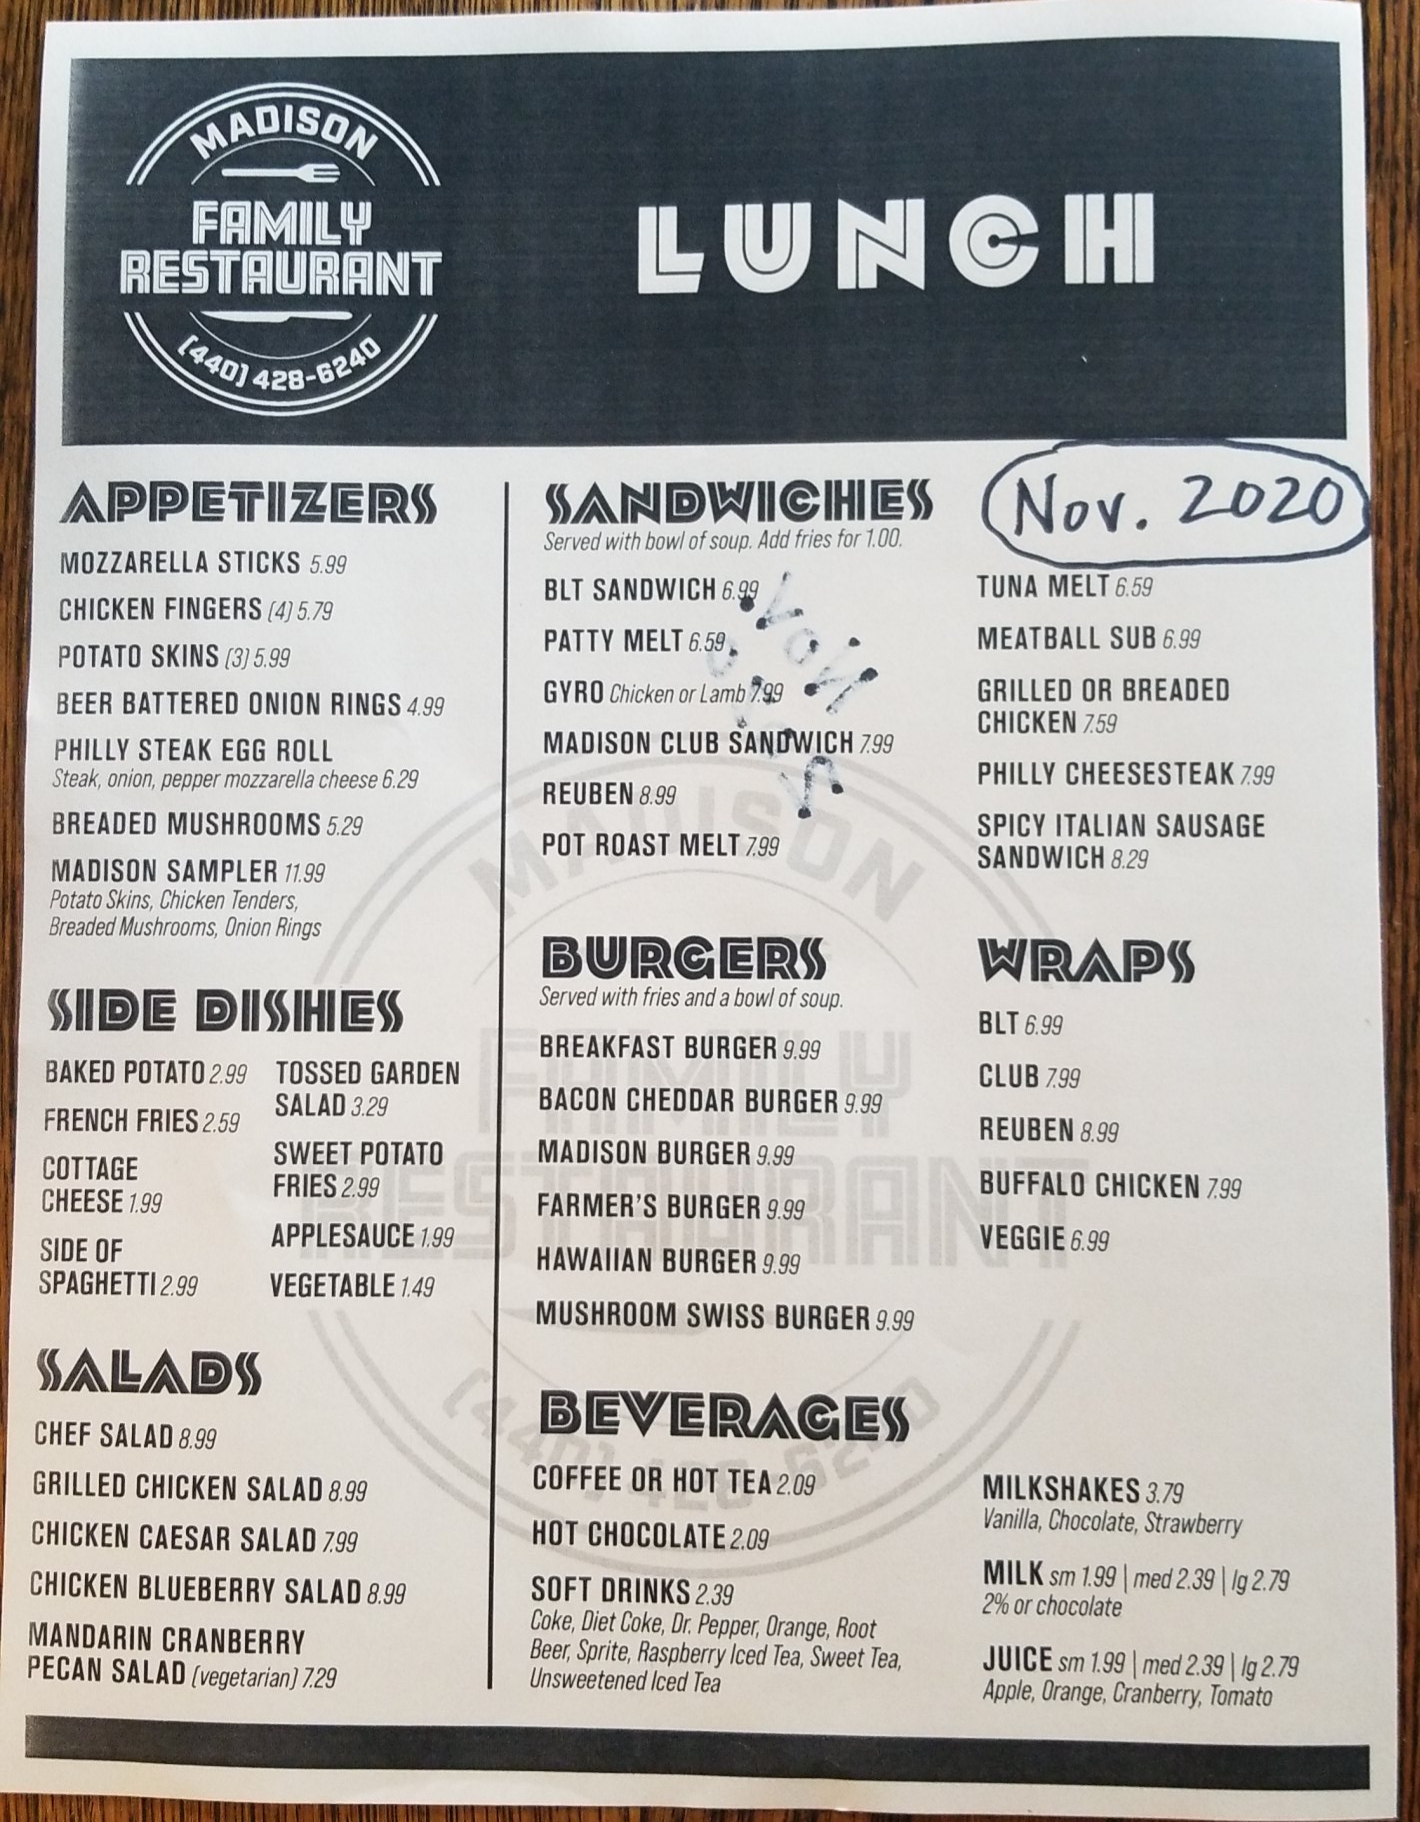 MADISON
FAMILY
RESTAURANT
(440) 428-6240
LUNCH
APPETIZERS
MOZZARELLA STICKS 5.99
CHICKEN FINGERS (4) 5.79
POTATO SKINS (3) 5.99
BEER BATTERED ONION RINGS 4.99
PHILLY STEAK EGG ROLL
Steak, onion, pepper mozzarella cheese 6.29
BREADED MUSHROOMS 5.29
MADISON SAMPLER 11.99
Potato Skins, Chicken Tenders,
Breaded Mushrooms, Onion Rings
SIDE DISHES
BAKED POTATO 2.99
FRENCH FRIES 2.59
COTTAGE
CHEESE 1.99
SIDE OF
SPAGHETTI 2.99
TOSSED GARDEN
SALAD 3.29
SWEET POTATO
FRIES 2.99
APPLESAUCE 1.99
VEGETABLE 1.49
SALADS
CHEF SALAD 8.99
GRILLED CHICKEN SALAD 8.99
CHICKEN CAESAR SALAD 7.99
CHICKEN BLUEBERRY SALAD 8.99
MANDARIN CRANBERRY
PECAN SALAD (vegetarian) 7.29
SANDWICHES
Served with bowl of soup. Add fries for 1.00.
BLT SANDWICH 6.99
PATTY MELT 6.59
GYRO Chicken or Lamb 7.99
MADISON CLUB SANDWICH 7.99
REUBEN 8.99
POT ROAST MELT 7.99
Nov. 2020
TUNA MELT 6.59
MEATBALL SUB 6.99
GRILLED OR BREADED
CHICKEN 7.59
PHILLY CHEESESTEAK 7.99
SPICY ITALIAN SAUSAGE
SANDWICH 8.29
BURGERS
Served with fries and a bowl of soup.
BREAKFAST BURGER 9.99
BACON CHEDDAR BURGER 9.99
MADISON BURGER 9.99
FARMER'S BURGER 9.99
HAWAIIAN BURGER 9.99
MUSHROOM SWISS BURGER 9.99
WRAPS
BLT 6.99
CLUB 7.99
REUBEN 8.99
BUFFALO CHICKEN 7.99
VEGGIE 6.99
BEVERAGES
COFFEE OR HOT TEA 2.09
HOT CHOCOLATE 2.09
SOFT DRINKS 2.39
Coke, Diet Coke, Dr. Pepper, Orange, Root
Beer, Sprite, Raspberry Iced Tea, Sweet Tea,
Unsweetened Iced Tea
MILKSHAKES 3.79
Vanilla, Chocolate, Strawberry
MILK sm 1.99 | med 2.39 | lg 2.79
2% or chocolate
JUICE sm 1.99 | med 2.39 | lg 2.79
Apple, Orange, Cranberry, Tomato
MADISON
FAMILY
RESTAURANT
(440) 428-6240